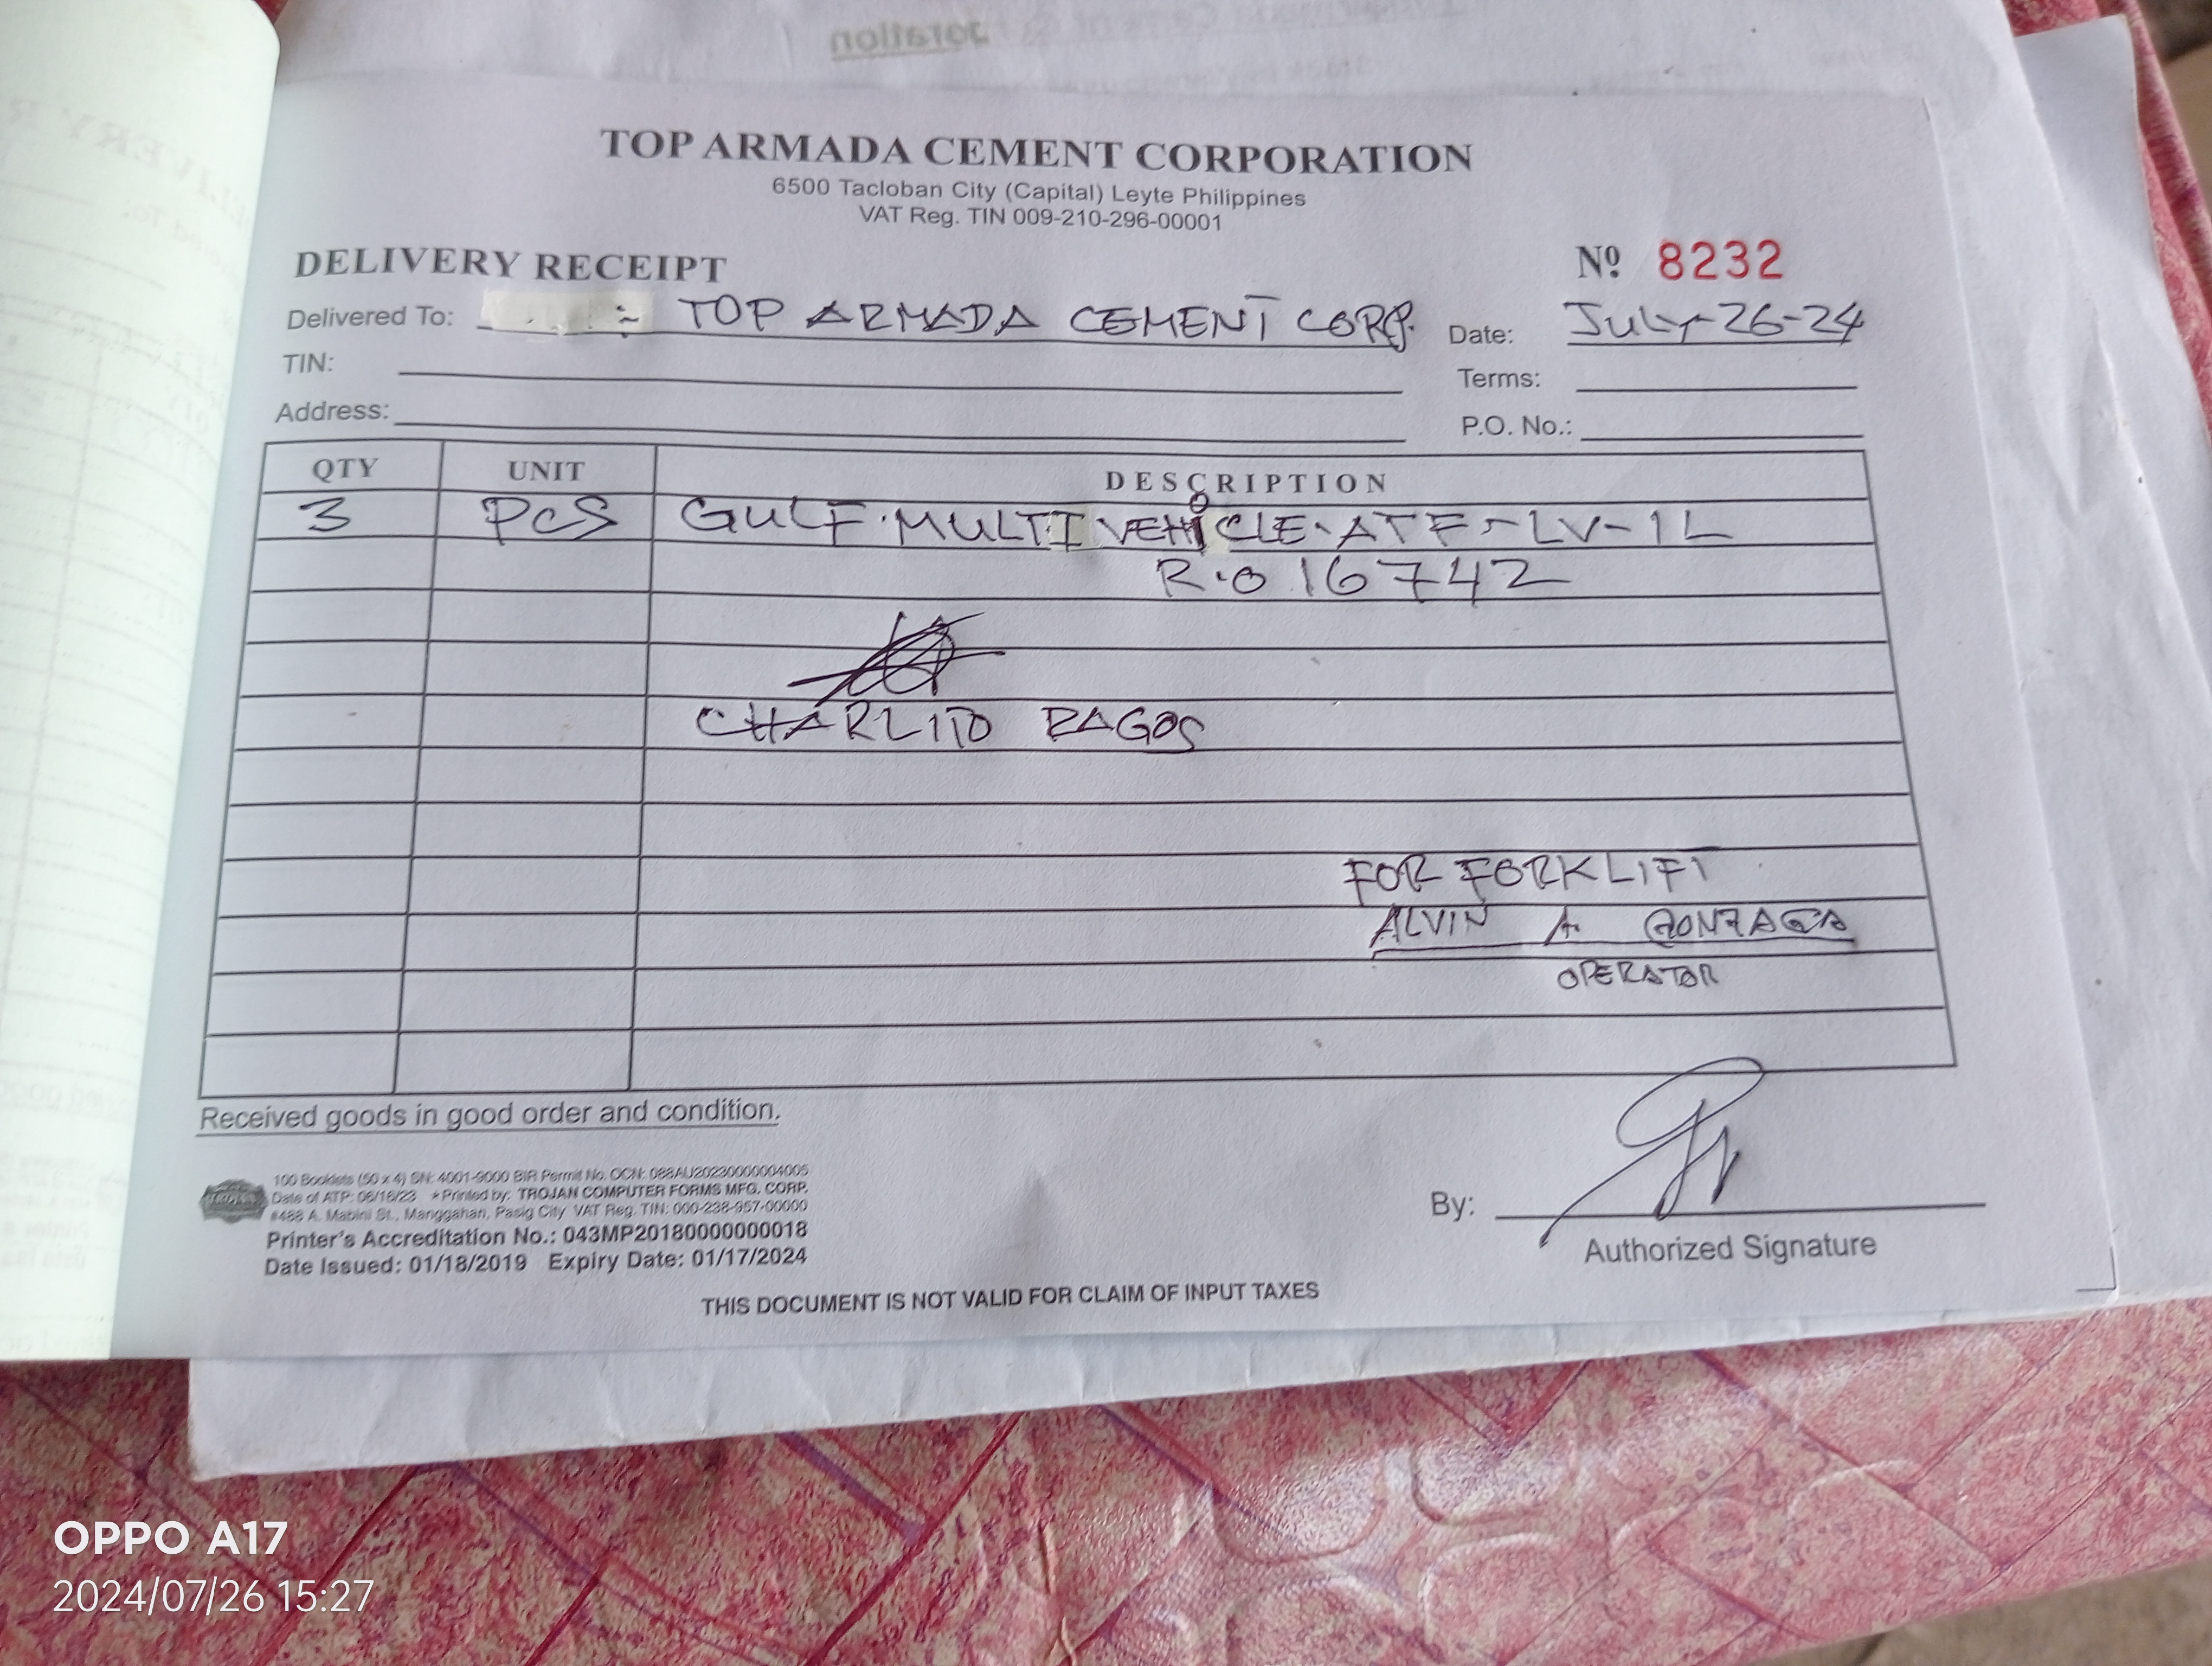 TOP ARMADA CEMENT CORPORATION
6500 Tacloban City (Capital) Leyte Philippines
VAT Reg. TIN 009-210-296-00001
DELIVERY RECEIPT
Nº 8232
Delivered To: TOP ARMADA CEMENT CORP. Date: July-26-24
TIN: Terms:
Address: P.O. No.:
QTY UNIT DESCRIPTION
3 PCS GULF MULTI VEHICLE-ATF-LV-1L
R.O 16742
CHARLITO RAGOS
FOR FORKLIFT
ALVIN A. GONZAGA
OPERATOR
Received goods in good order and condition.
100 Booklets (50 x 4) SN: 4001-9000 BIR Permit No. OCN: 088AU20230000004005
Date of ATP: 06/16/23 * Printed by: TROJAN COMPUTER FORMS MFG. CORP.
#488 A. Mabini St., Manggahan, Pasig City VAT Reg. TIN: 000-238-957-00000
Printer's Accreditation No.: 043MP20180000000018
Date Issued: 01/18/2019 Expiry Date: 01/17/2024
By:
Authorized Signature
THIS DOCUMENT IS NOT VALID FOR CLAIM OF INPUT TAXES
OPPO A17
2024/07/26 15:27